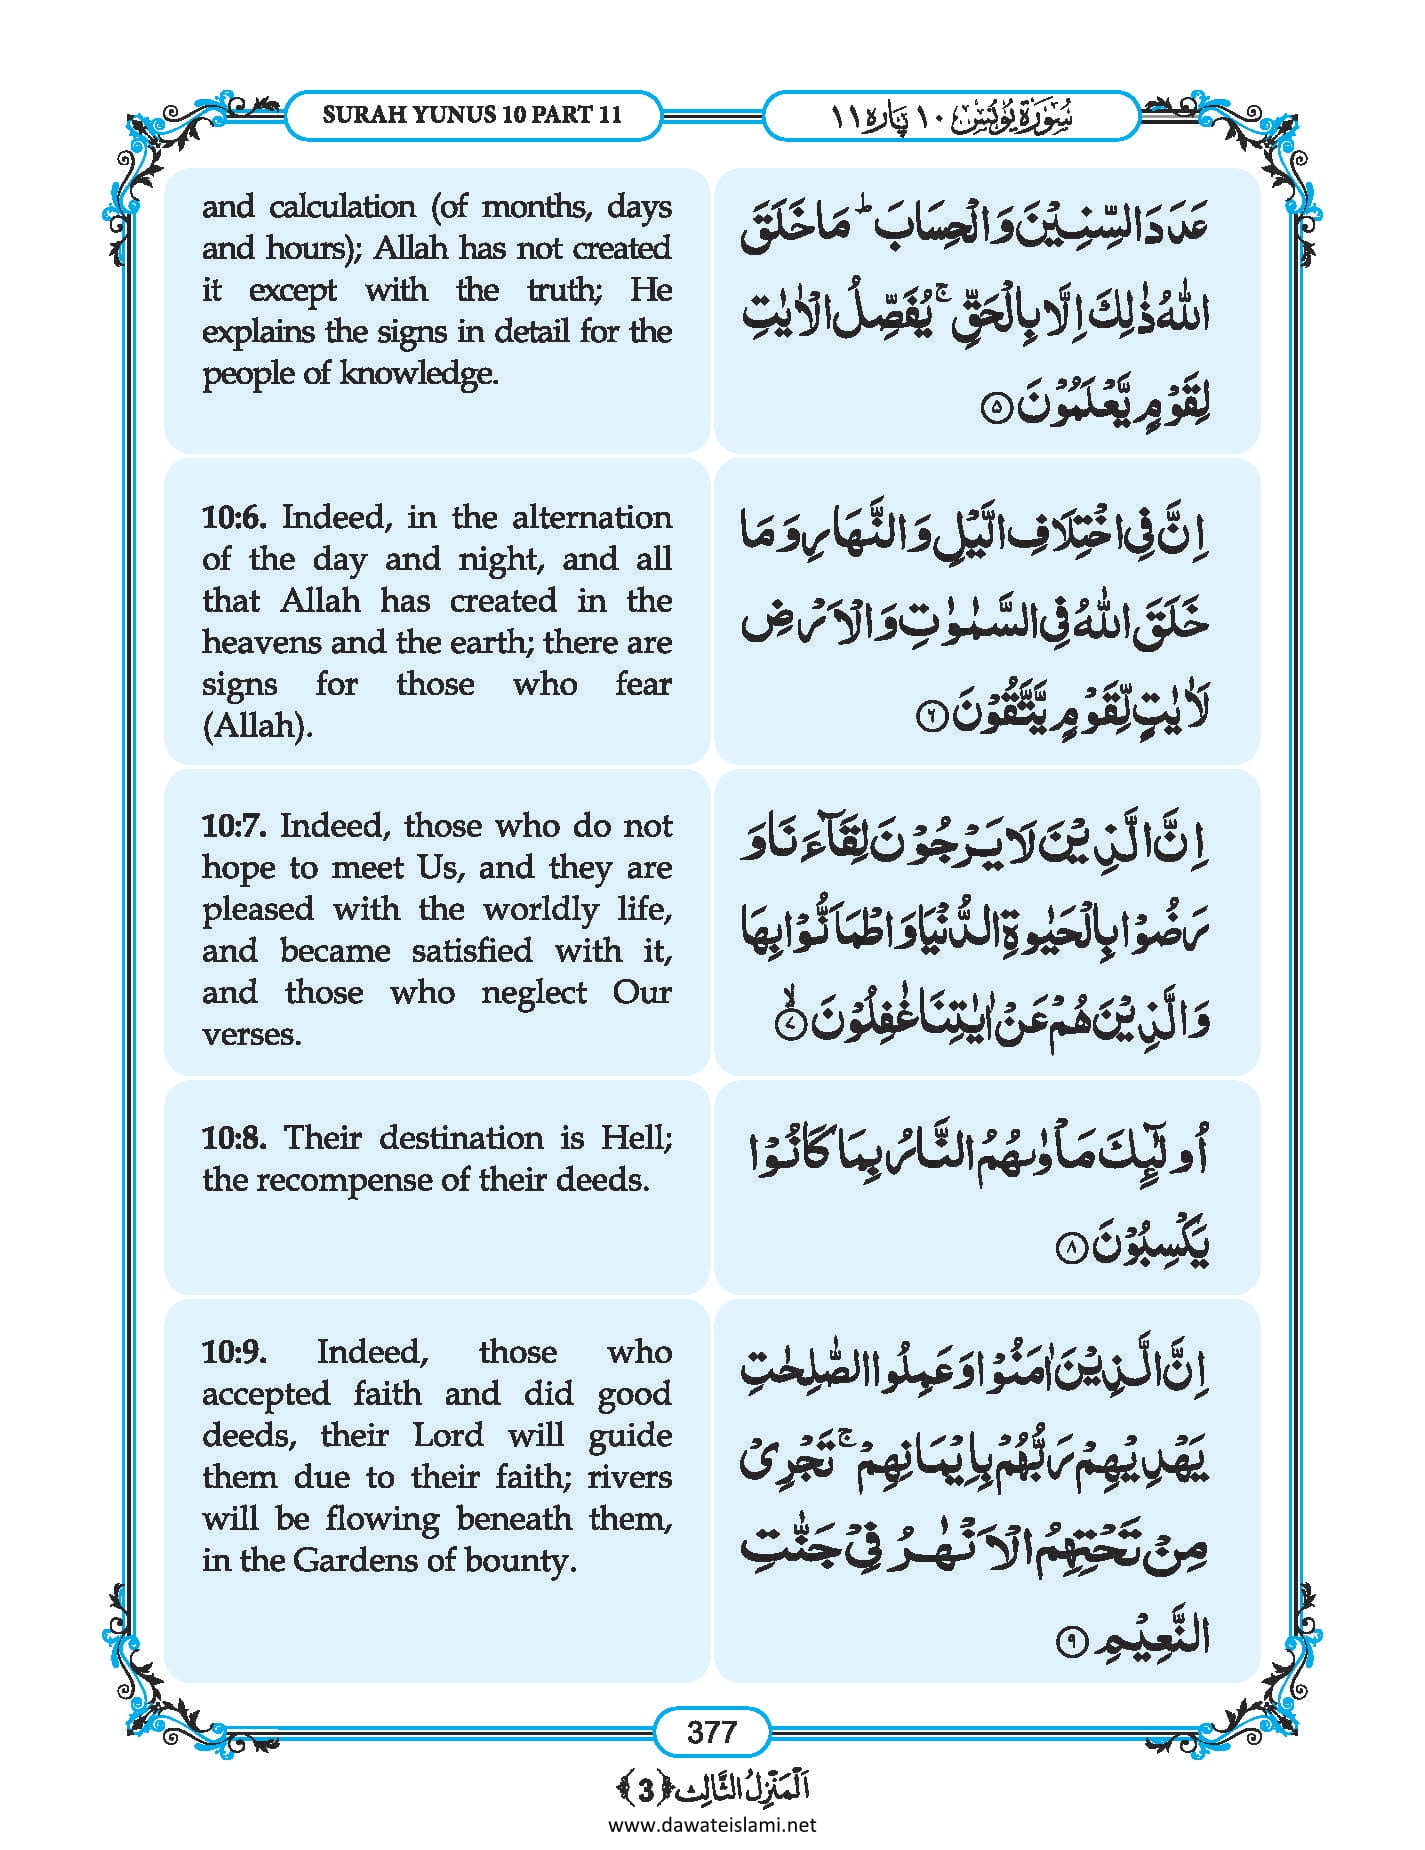 SURAH YUNUS 10 PART 11
سُوْرَةُ يُوْنُسَ ١٠ پَارَه ١١
and calculation (of months, days
and hours); Allah has not created
it except with the truth; He
explains the signs in detail for the
people of knowledge.
عَدَدَ السِّنِیْنَ وَ الْحِسَابَ ؕ مَا خَلَقَ
اللّٰهُ ذٰلِكَ اِلَّا بِالْحَقِّ ۚ یُفَصِّلُ الْاٰیٰتِ
لِقَوْمٍ یَّعْلَمُوْنَ ۵
10:6. Indeed, in the alternation
of the day and night, and all
that Allah has created in the
heavens and the earth; there are
signs for those who fear
(Allah).
اِنَّ فِی اخْتِلَافِ الَّیْلِ وَ النَّهَارِ وَ مَا
خَلَقَ اللّٰهُ فِی السَّمٰوٰتِ وَ الْاَرْضِ
لَاٰیٰتٍ لِّقَوْمٍ یَّتَّقُوْنَ ۶
10:7. Indeed, those who do not
hope to meet Us, and they are
pleased with the worldly life,
and became satisfied with it,
and those who neglect Our
verses.
اِنَّ الَّذِیْنَ لَا یَرْجُوْنَ لِقَآءَنَا وَ
رَضُوْا بِالْحَیٰوةِ الدُّنْیَا وَ اطْمَاَنُّوْا بِهَا
وَ الَّذِیْنَ هُمْ عَنْ اٰیٰتِنَا غٰفِلُوْنَ ۙ۷
10:8. Their destination is Hell;
the recompense of their deeds.
اُولٰٓىٕكَ مَاْوٰىهُمُ النَّارُ بِمَا كَانُوْا
یَكْسِبُوْنَ ۸
10:9. Indeed, those who
accepted faith and did good
deeds, their Lord will guide
them due to their faith; rivers
will be flowing beneath them,
in the Gardens of bounty.
اِنَّ الَّذِیْنَ اٰمَنُوْا وَ عَمِلُوا الصّٰلِحٰتِ
یَهْدِیْهِمْ رَبُّهُمْ بِاِیْمَانِهِمْ ۚ تَجْرِیْ
مِنْ تَحْتِهِمُ الْاَنْهٰرُ فِیْ جَنّٰتِ
النَّعِیْمِ ۹
377
اَلْمَنْزِلُ الثَّالِث ﴿3﴾
www.dawateislami.net